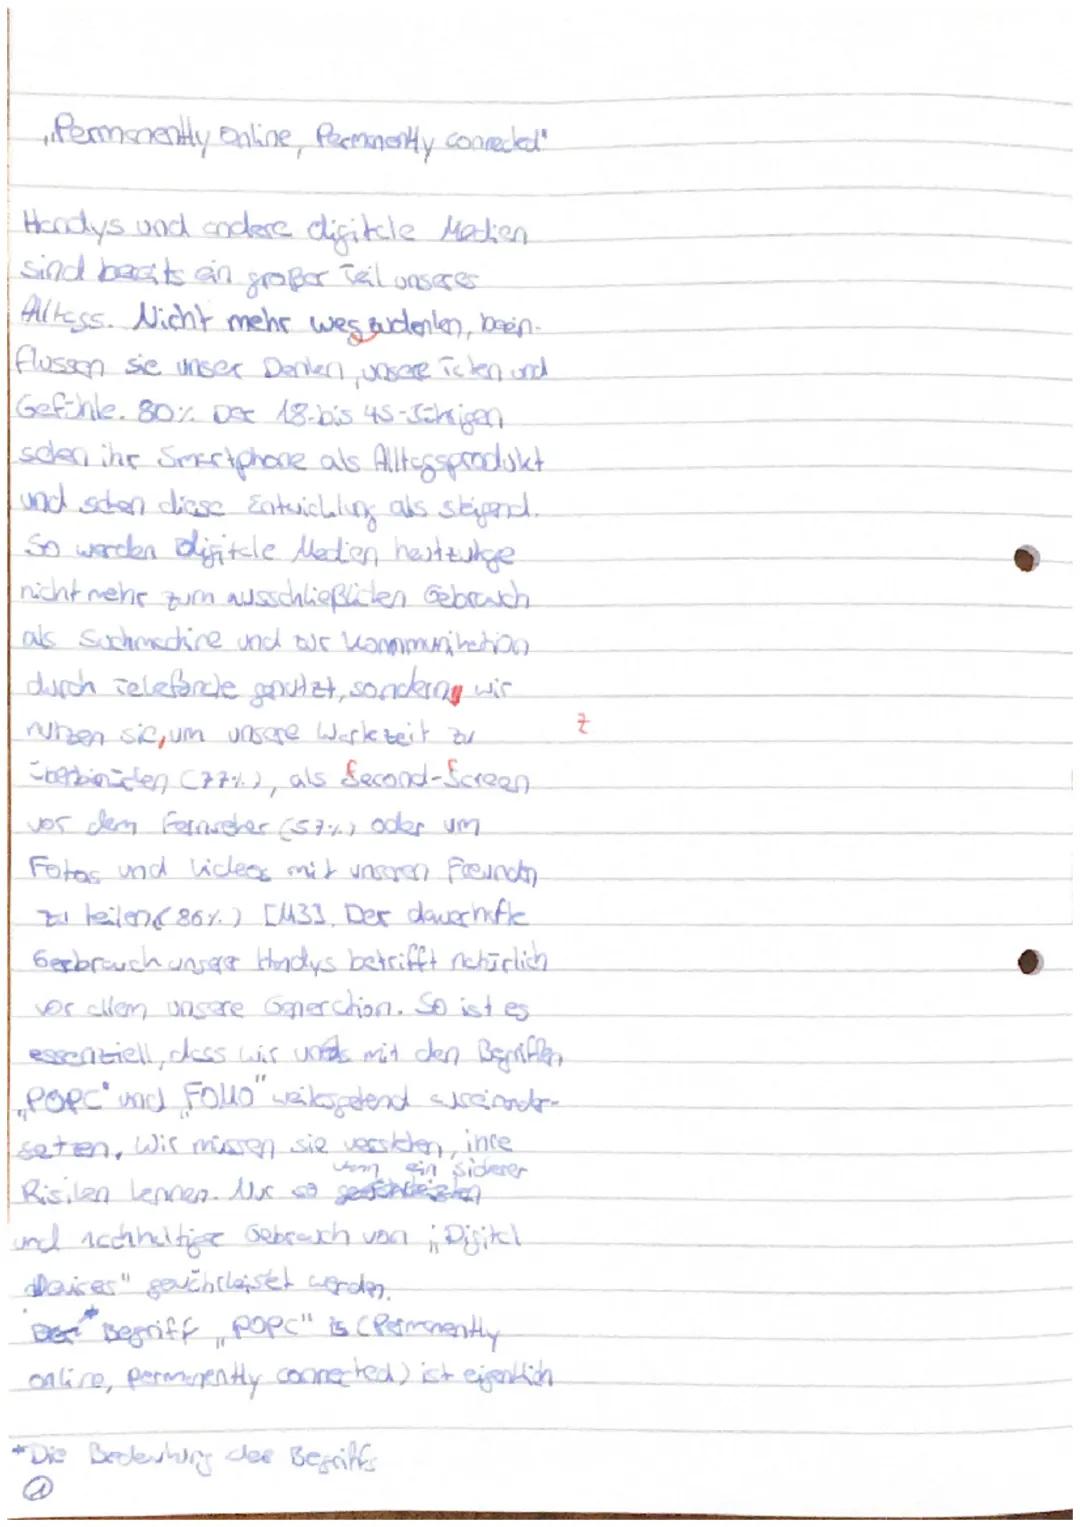 „Permanently Online, Permanently connected"
Handys und andere digitale Medien
sind bereits ein großer Teil unseres
Alltags. Nicht mehr wegzudenken, beein-
flussen sie unser Denken, unsere Taten und
Gefühle. 80% Der 18-bis 45-Jährigen
sehen ihr Smartphone als Alltagsprodukt
und sehen diese Entwicklung als steigend.
So werden Digitale Medien heutzutge
nicht mehr zum ausschließlichen Gebrauch
als Suchmachine und zur Kommunikation
durch Telefonate genutzt, sondern wir
nutzen sie, um unsere Wartezeit zu
z
überbrücken (77%), als Second-Screen
vor dem Fernseher (57%) oder um
Fotos und Videos mit unseren Freunden
zu teilen (86%) [M3]. Der dauerhafte
Gerbrauch unserer Handys betrifft natürlich
vor allem unsere Generation. So ist es
essenziell, dass wir uns mit den Begriffen
„POPC" und „FOMO" weitgehend auseinander-
setzen. Wir müssen sie verstehen, ihre
Risiken kennen. Nur so kann ein sicherer
und nachhaltiger Gebrauch von „Digital
Devices" gewährleistet werden.
* Begriff „POPC" is (Permanently
online, permanently connected) ist eigentlich
*Die Bedeutung des Begriffs
1